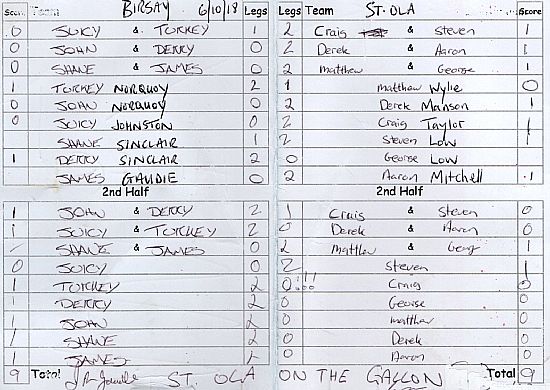 Score Team BIRSAY 6/10/18 Legs Legs Team ST. OLA Score
0 JUICY & TORKEY 1 2 Craig & Steven 1
0 JOHN & DERRY 0 2 Derek & Aaron 1
0 SHANE & JAMES 0 2 matthew & George 1
1 TORKEY NORQUOY 2 1 matthew Wylie 0
0 JOHN NORQUOY 0 2 Derek Manson 1
0 JUICY JOHNSTON 0 2 Craig Taylor 1
SHANE SINCLAIR 1 2 Steven Low
1 DERRY SINCLAIR 2 0 George Low
JAMES GAUDIE 0 2 Aaron Mitchell 1
2nd Half 2nd Half
1 JOHN & DERRY 2 1 Craig & Steven 0
1 JUICY & TORKEY 2 0 Derek & Aaron 0
SHANE & JAMES 0 2 matthew & George 1
0 JUICY 0 2 Steven 1
1 TORKEY 2 0!!! Craig 0
1 DERRY 2 0 George 0
1 JOHN 2 0 matthew 0
1 SHANE 2 0 Derek 0
1 JAMES 2 0 Aaron 0
9 Total ST. OLA ON THE GALLON Total 9